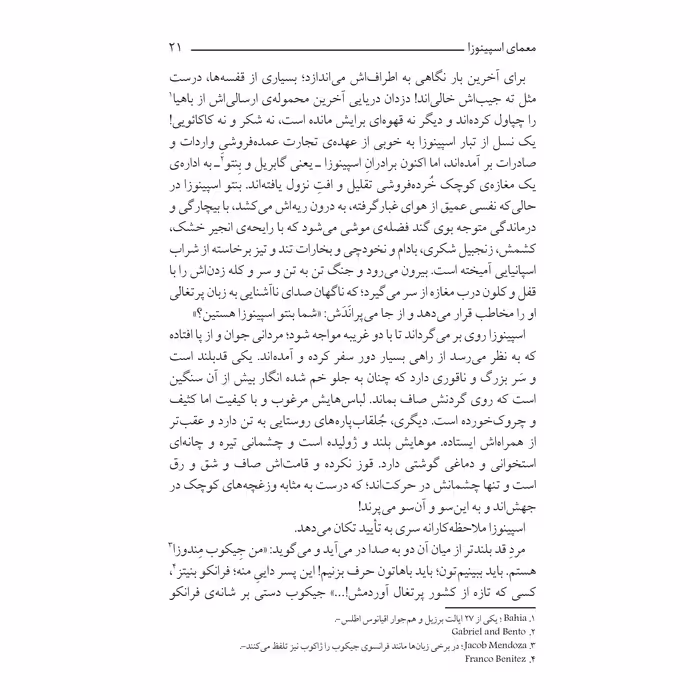 معمای اسپینوزا ۲۱
برای آخرین بار نگاهی به اطراف‌اش می‌اندازد؛ بسیاری از قفسه‌ها، درست
مثل ته جیب‌اش خالی‌اند! دزدان دریایی آخرین محموله‌ی ارسالی‌اش از باهیا۱
را چپاول کرده‌اند و دیگر نه قهوه‌ای برایش مانده است، نه شکر و نه کاکائویی!
یک نسل از تبار اسپینوزا به خوبی از عهده‌ی تجارت عمده‌فروشی واردات و
صادرات بر آمده‌اند، اما اکنون برادرانِ اسپینوزا ـ یعنی گابریل و بِنتو۲ ـ به اداره‌ی
یک مغازه‌ی کوچک خُرده‌فروشی تقلیل و افتِ نزول یافته‌اند. بنتو اسپینوزا در
حالی‌که نفسی عمیق از هوای غبارگرفته، به درون ریه‌اش می‌کشد، با بیچارگی و
درماندگی متوجه بوی گند فضله‌ی موشی می‌شود که با رایحه‌ی انجیر خشک،
کشمش، زنجبیل شکری، بادام و نخودچی و بخارات تند و تیز برخاسته از شراب
اسپانیایی آمیخته است. بیرون می‌رود و جنگ تن به تن و سر و کله زدن‌اش را با
قفل و کلون درب مغازه از سر می‌گیرد؛ که ناگهان صدای ناآشنایی به زبان پرتغالی
او را مخاطب قرار می‌دهد و از جا می‌پرانَدَش: «شما بنتو اسپینوزا هستین؟»
اسپینوزا روی بر می‌گرداند تا با دو غریبه مواجه شود؛ مردانی جوان و از پا افتاده
که به نظر می‌رسد از راهی بسیار دور سفر کرده و آمده‌اند. یکی قدبلند است
و سَر بزرگ و ناقوری دارد که چنان به جلو خم شده انگار بیش از آن سنگین
است که روی گردنش صاف بماند. لباس‌هایش مرغوب و با کیفیت اما کثیف
و چروک‌خورده است. دیگری، جُلقاب‌پاره‌های روستایی به تن دارد و عقب‌تر
از همراه‌اش ایستاده. موهایش بلند و ژولیده است و چشمانی تیره و چانه‌ای
استخوانی و دماغی گوشتی دارد. قوز نکرده و قامت‌اش صاف و شق و رق
است و تنها چشمانش در حرکت‌اند؛ که درست به مثابه وزغچه‌های کوچک در
جهش‌اند و به این‌سو و آن‌سو می‌پرند!
اسپینوزا ملاحظه‌کارانه سری به تأیید تکان می‌دهد.
مردِ قد بلندتر از میان آن دو به صدا در می‌آید و می‌گوید: «من جِیکوب مِندوزا۳
هستم. باید ببینیم‌تون؛ باید باهاتون حرف بزنیم! این پسر داییِ منه؛ فرانکو بنیتز۴،
کسی که تازه از کشور پرتغال آوردمش!...» جیکوب دستی بر شانه‌ی فرانکو
۱. Bahia ؛ یکی از ۲۷ ایالت برزیل و هم‌جوار اقیانوس اطلس -.
۲. Gabriel and Bento
۳. Jacob Mendoza؛ در برخی زبان‌ها مانند فرانسوی جیکوب را ژاکوب نیز تلفظ می‌کنند-.
۴. Franco Benitez